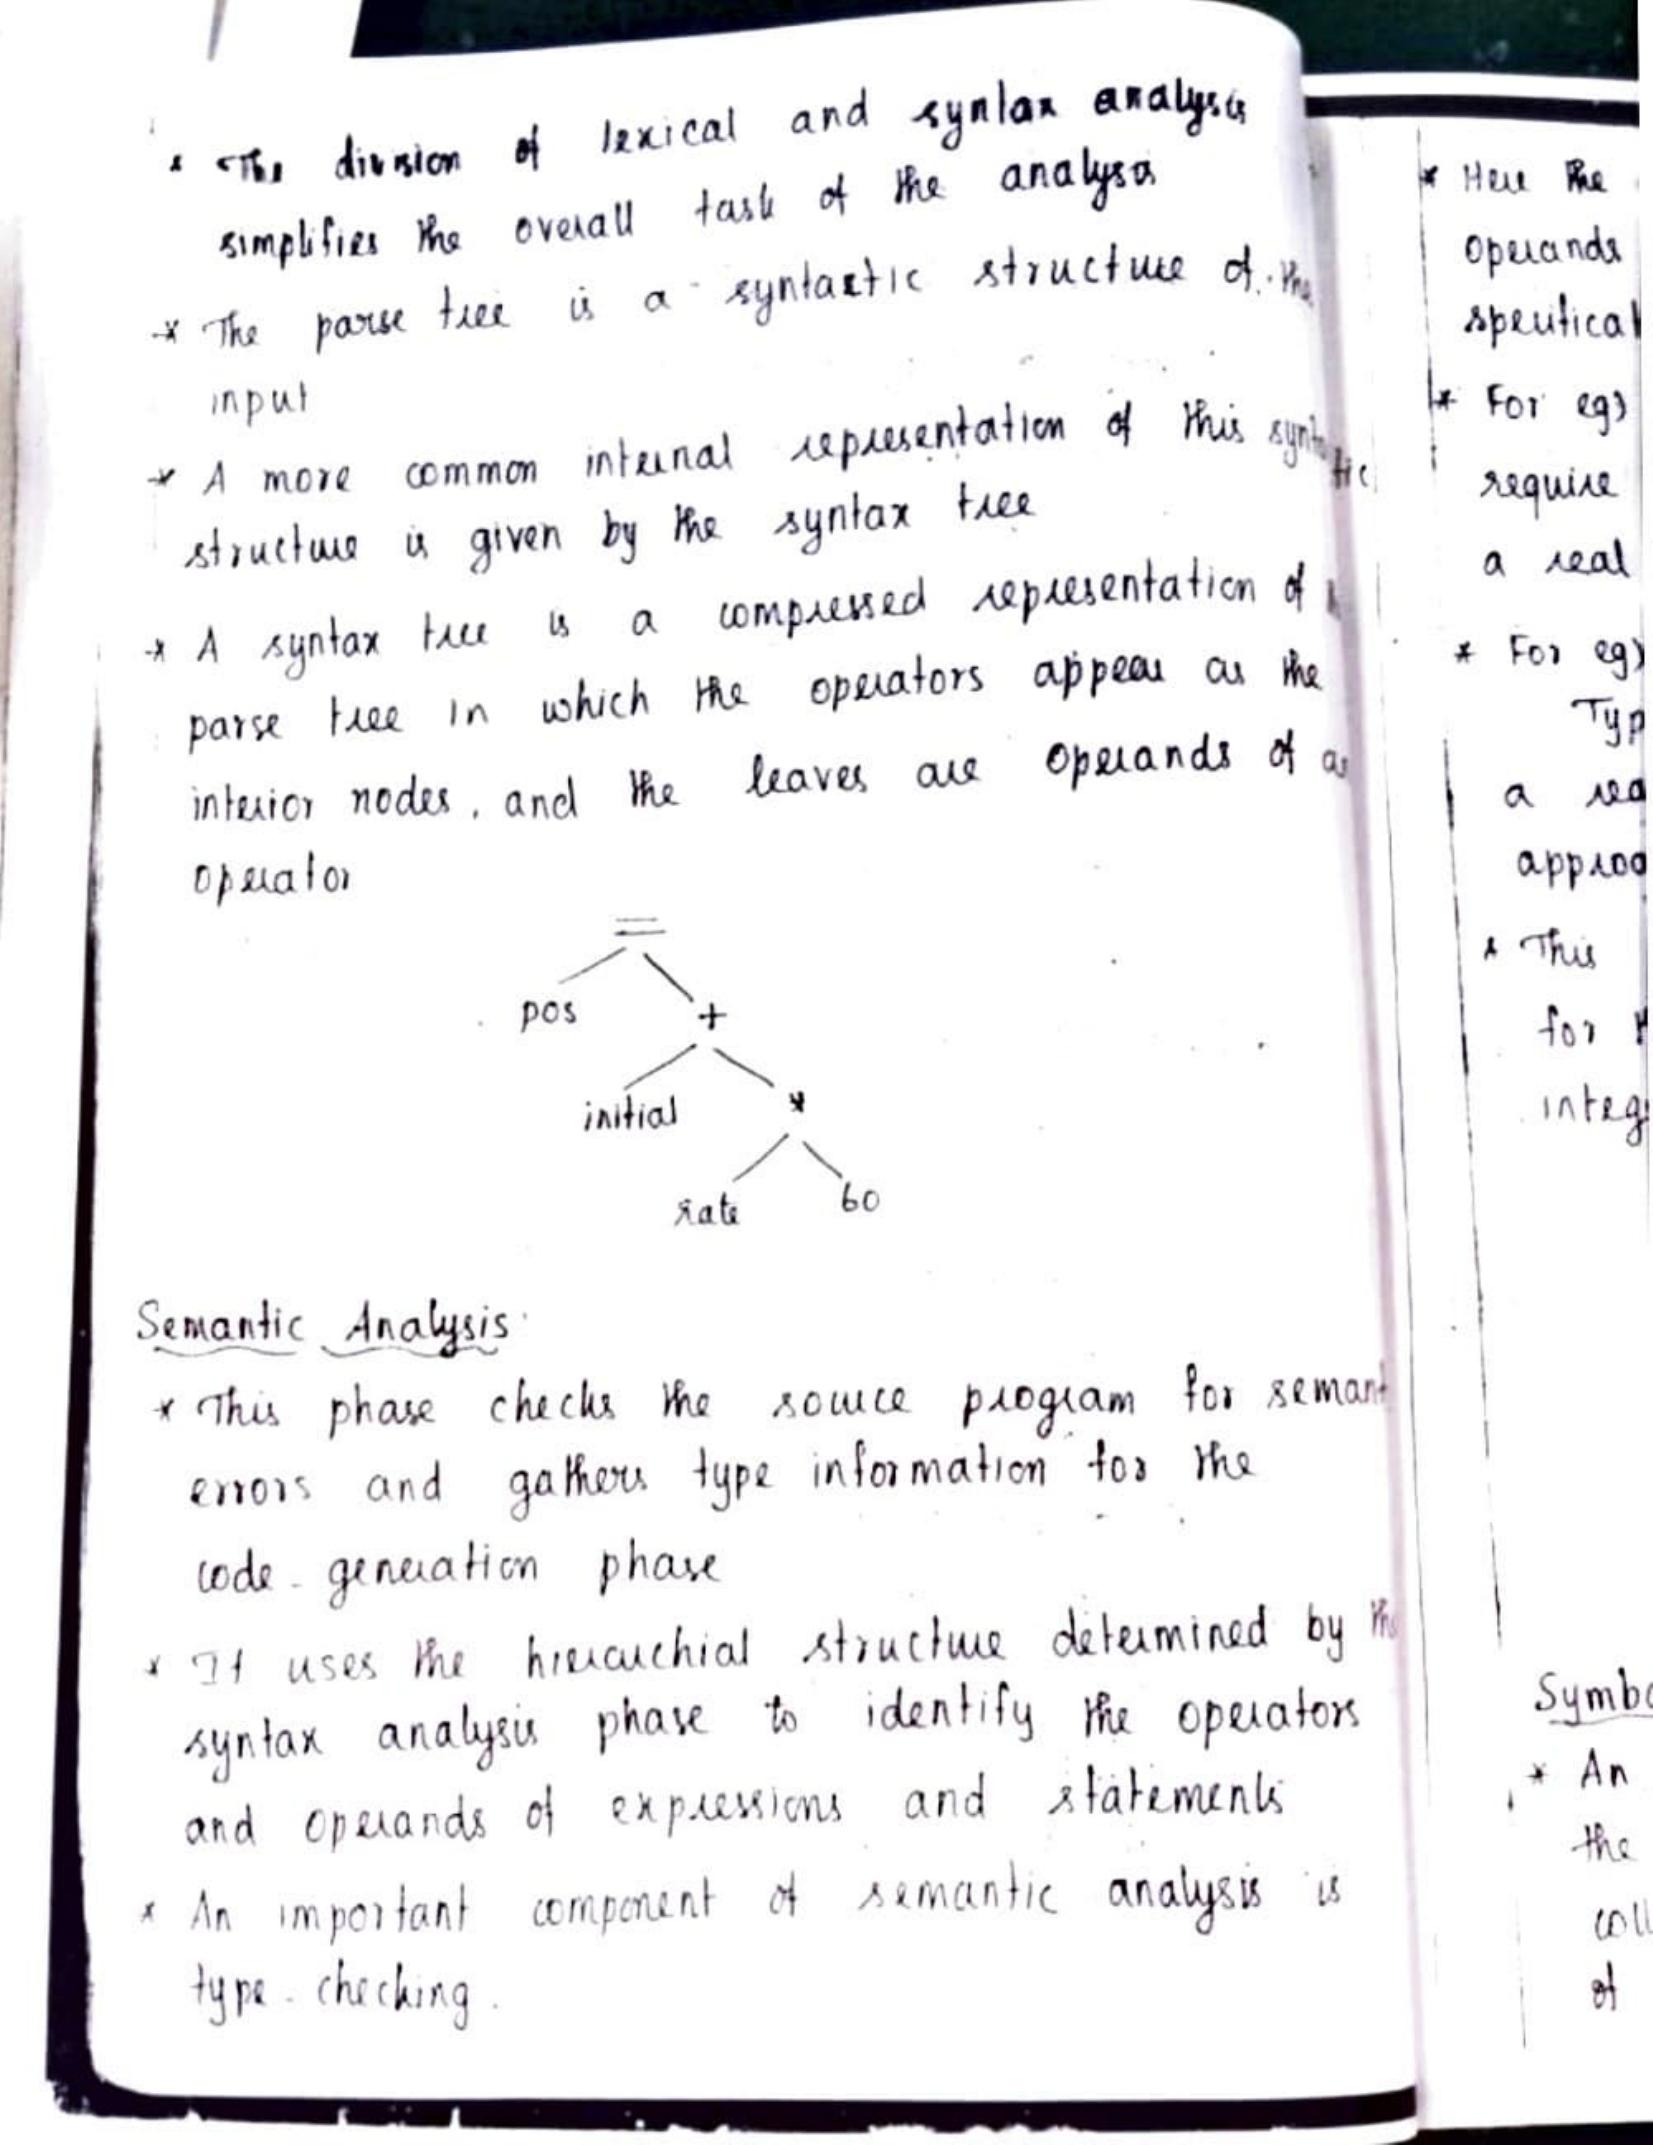 * The division of lexical and syntax analysis
simplifies the overall task of the analysis
* The parse tree is a syntactic structure of the
input
* A more common internal representation of this syntactic
structure is given by the syntax tree
* A syntax tree is a compressed representation of
parse tree in which the operators appear as the
interior nodes, and the leaves are operands of an
operator
=
pos +
initial *
rate 60
Semantic Analysis
* This phase checks the source program for semant
errors and gathers type information for the
code-generation phase
* It uses the hierarchial structure determined by the
syntax analysis phase to identify the operators
and operands of expressions and statements
* An important component of semantic analysis is
type-checking.
* Here the
operands
* For eg)
require
a real
* For eg)
Typ
a rea
* This
for
integ
Symbo
* An
the
coll
of